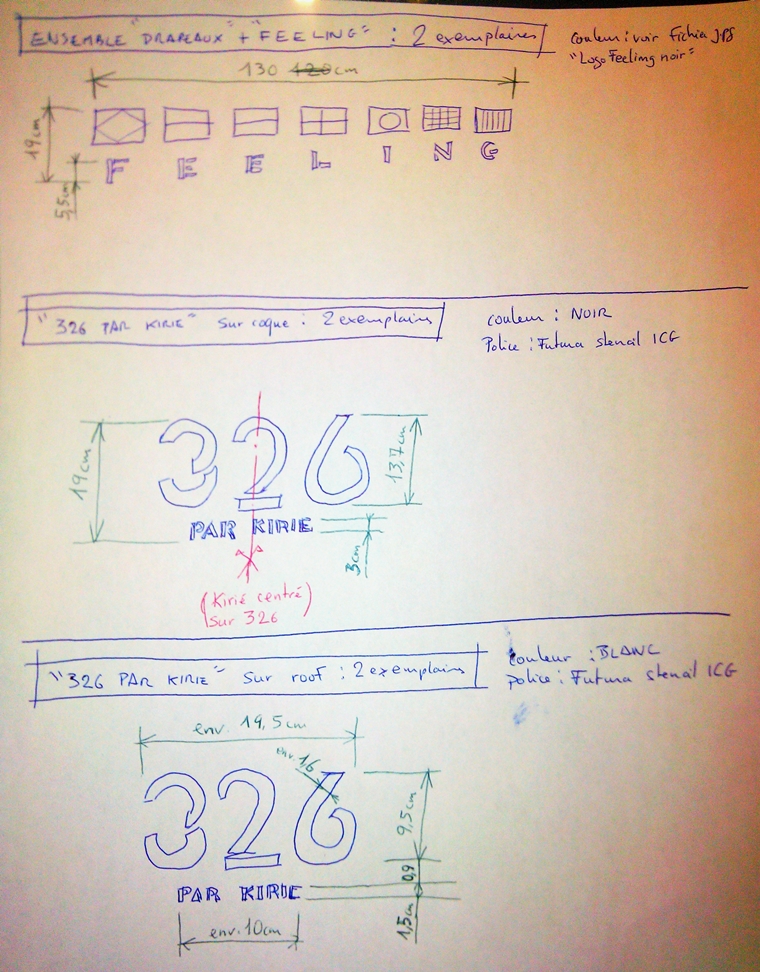 ENSEMBLE "DRAPEAUX" + "FEELING" : 2 exemplaires
couleur : voir fichier JPG
"Logo Feeling noir"
130 120 cm
19cm
5,5cm
F E E L I N G
"326 PAR KIRIE" sur coque : 2 exemplaires
couleur : NOIR
Police : Futura stencil ICG
19cm
326
13,7cm
PAR KIRIE
3cm
(Kirié centré)
sur 326
"326 PAR KIRIE" sur roof : 2 exemplaires
couleur : BLANC
Police : Futura stencil ICG
env. 19,5cm
env 1,6
326
9,5cm
0,9
PAR KIRIE
1,5cm
env. 10cm